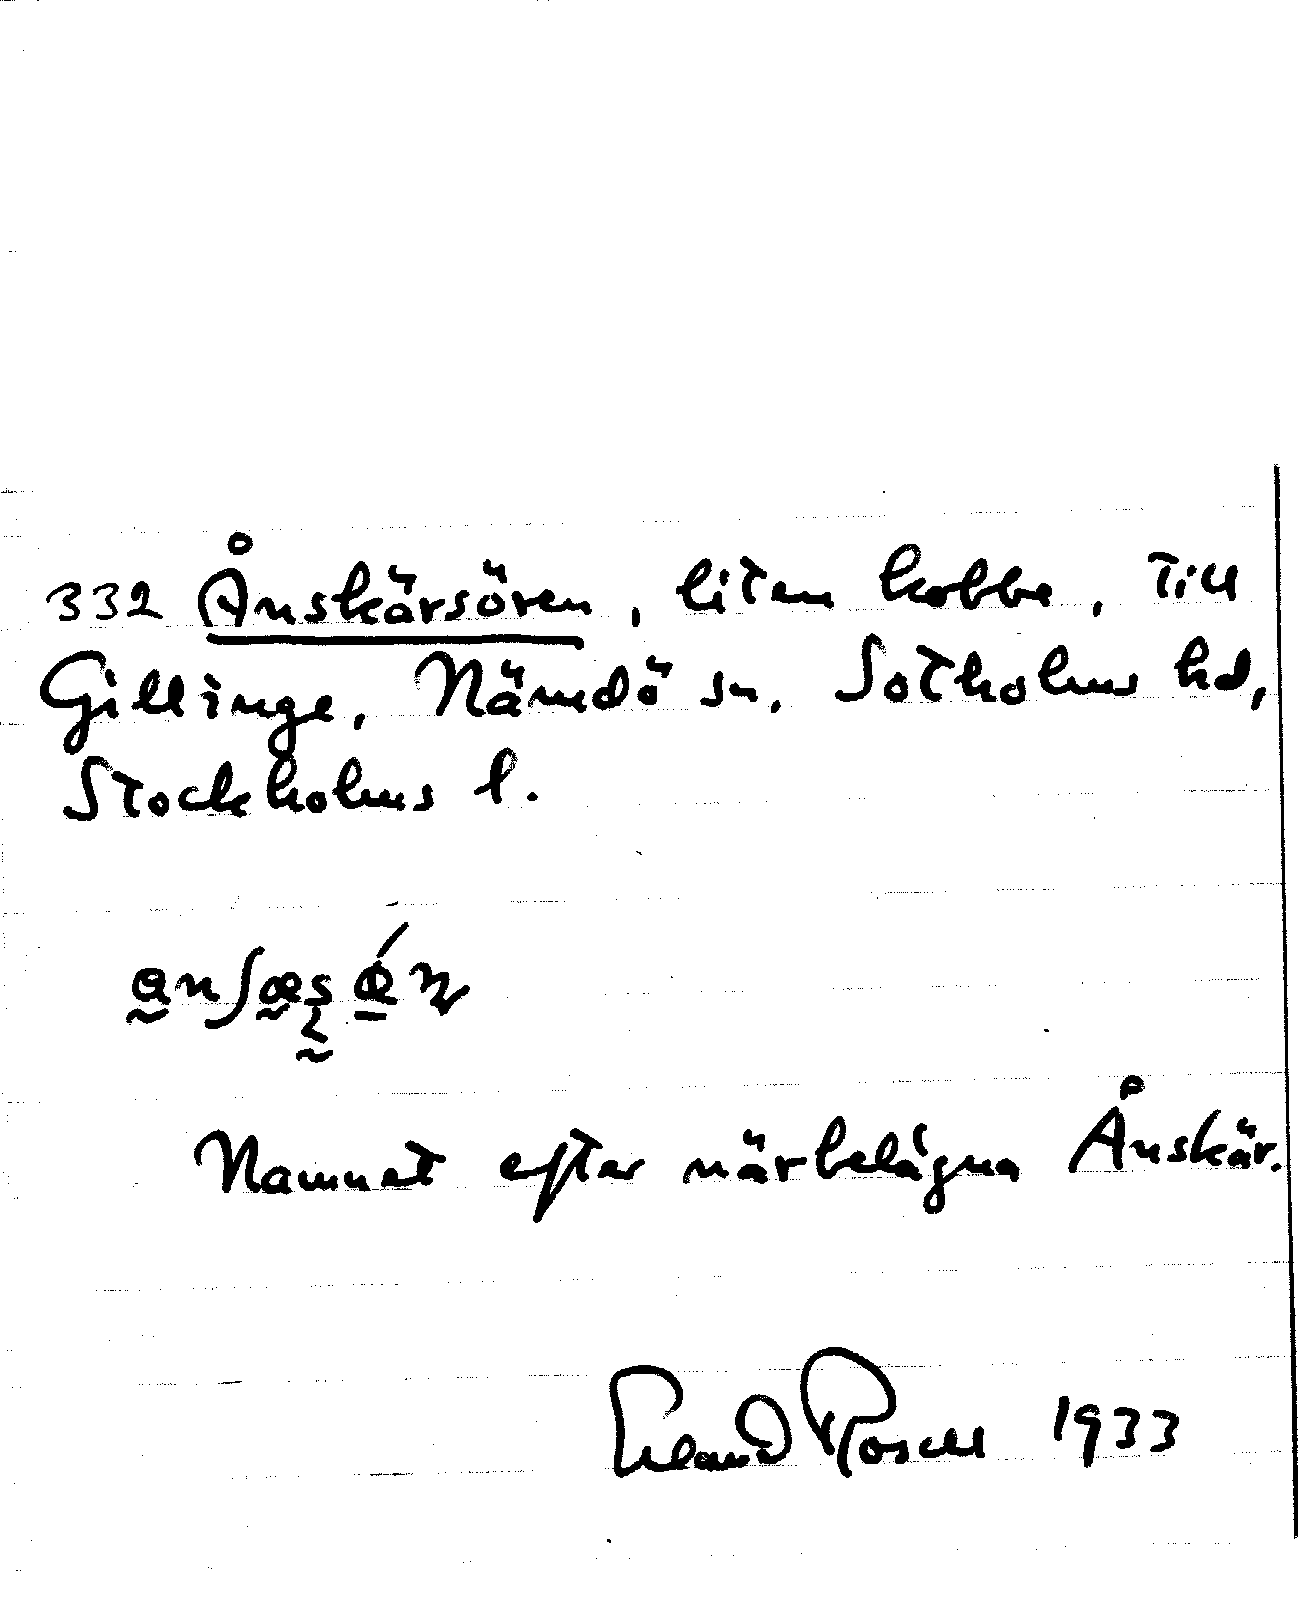 332 Ånskärsören, liten kobbe, till
Gillinge, Nämdö sn, Sotholms hd,
Stockholms l.
Namnet efter närbelägna Ånskär.
Erland Rosell 1933